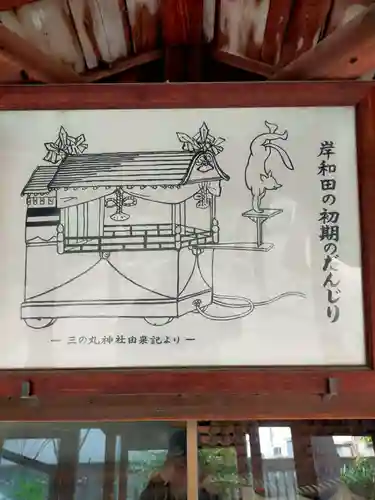 岸和田の初期のだんじり
― 三の丸神社由来記より ―